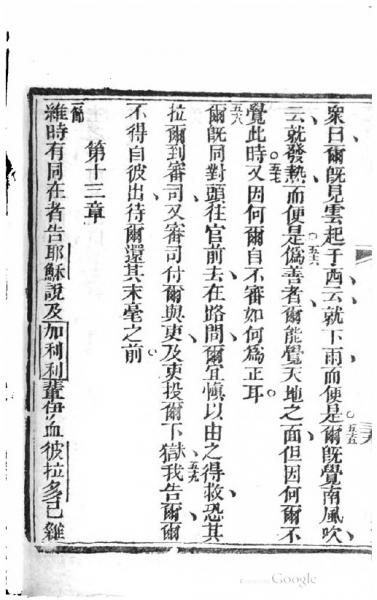 衆曰爾旣見雲起于西云就下雨而便是。五五爾旣覺南風吹、
云就發熱而便是。五六僞善者爾能覺天地之面但因何爾不
覺此時。五七又因何爾自不審如何爲正耳。
五八爾旣同對頭往官前去在路間爾宜慎以由之得救恐其
拉爾到審司又審司付爾與吏及吏投爾下獄、五九我告爾爾
不得自彼出、待爾還其末毫之前。
第十三章
一節維時有同在者告耶穌說及加利利輩伊血彼拉多己雜
Google